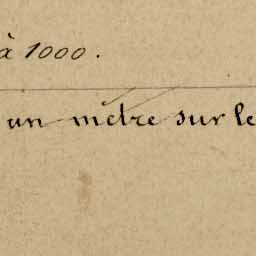 à 1000.
un mètre sur le